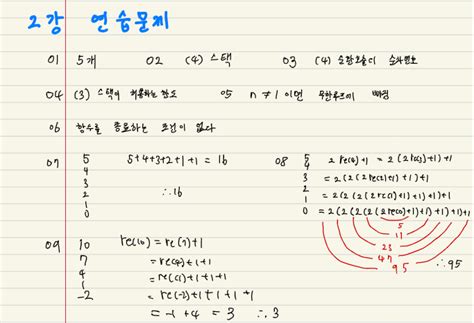 2강 연습문제
01 5개 02 (4) 스택 03 (4)
04 (3) 스택이 하는 05 n ≠ 1 이면 무한루프에 빠짐
06 함수를 종료하는 조건이 없다
07 5 5+4+3+2+1+1 = 16 08 5 2re(4)+1 = 2(2re(3)+1)+1
4 4
3 3 = 2(2(2re(2)+1)+1)+1
2 ∴16 2 = 2(2(2(2re(1)+1)+1)+1)+1
1 1
0 0 = 2(2(2(2(2re(0)+1)+1)+1)+1)+1
5
11
23
47
95 ∴95
09 10 re(10) = re(7)+1
7 = re(4)+1+1
4 = re(1)+1+1+1
1 = re(-2)+1+1+1+1
-2 = -1+4 = 3 ∴3